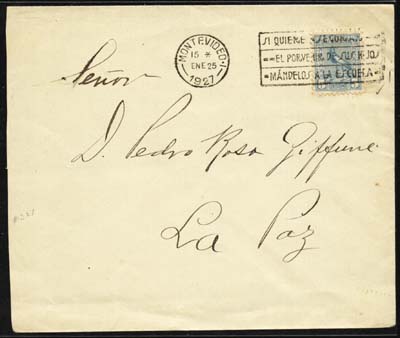 MONTEVIDEO
15 *
ENE 25
1927
SI QUIERE ASEGURAR
EL PORVENIR DE SUS HIJOS
MÁNDELOS A LA ESCUELA
Señor
D. Pedro Rosa Giffuni
La Paz